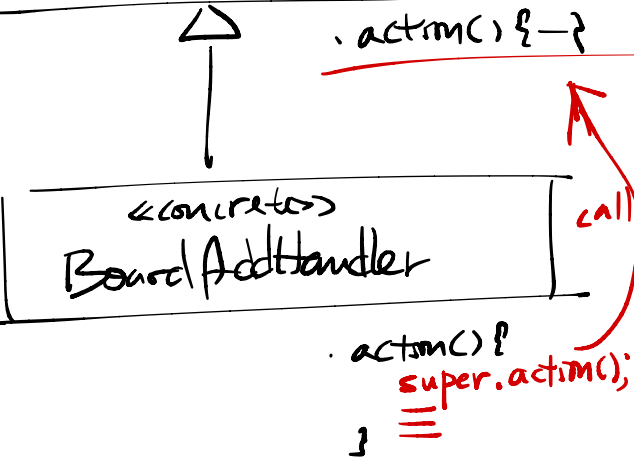 . action() {—}
<<concrete>>
call
BoardAddHandler
. action() {
super.action();
}